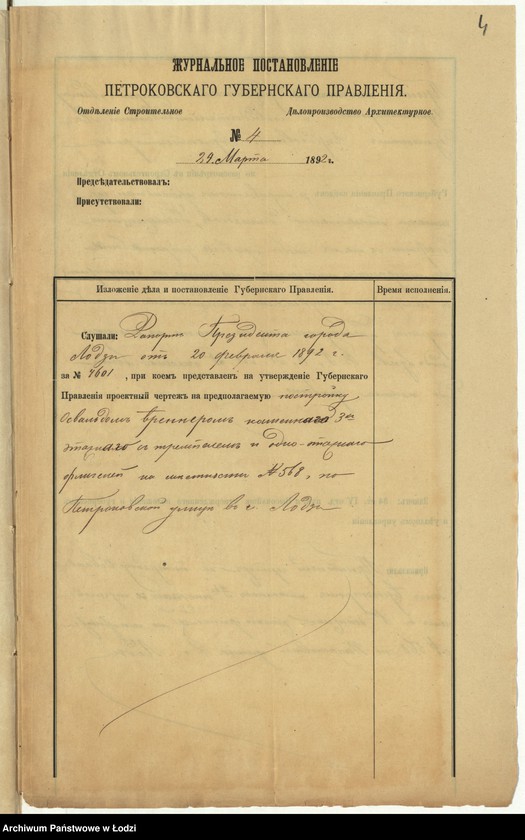 4
ЖУРНАЛЬНОЕ ПОСТАНОВЛЕНІЕ
ПЕТРОКОВСКАГО ГУБЕРНСКАГО ПРАВЛЕНІЯ.
Отдѣленіе Строительное Дѣлопроизводство Архитектурное
№ 4
29 Марта 1892 г.
Предсѣдательствовалъ:
Присутствовали:
Изложеніе дѣла и постановленіе Губернскаго Правленія. Время исполненія.
Слушали: Рапортъ Президента города
Лодзи отъ 20 февраля 1892 г.
за № 4601, при коемъ представленъ на утвержденіе Губернскаго
Правленія проектный чертежъ на предполагаемую постройку
Освальдомъ каменнаго 3хъ
этажнаго съ и одно-этажнаго
флигелей на мѣстности № 568, по
Петроковской улицѣ въ г. Лодзи
Archiwum Państwowe w Łodzi